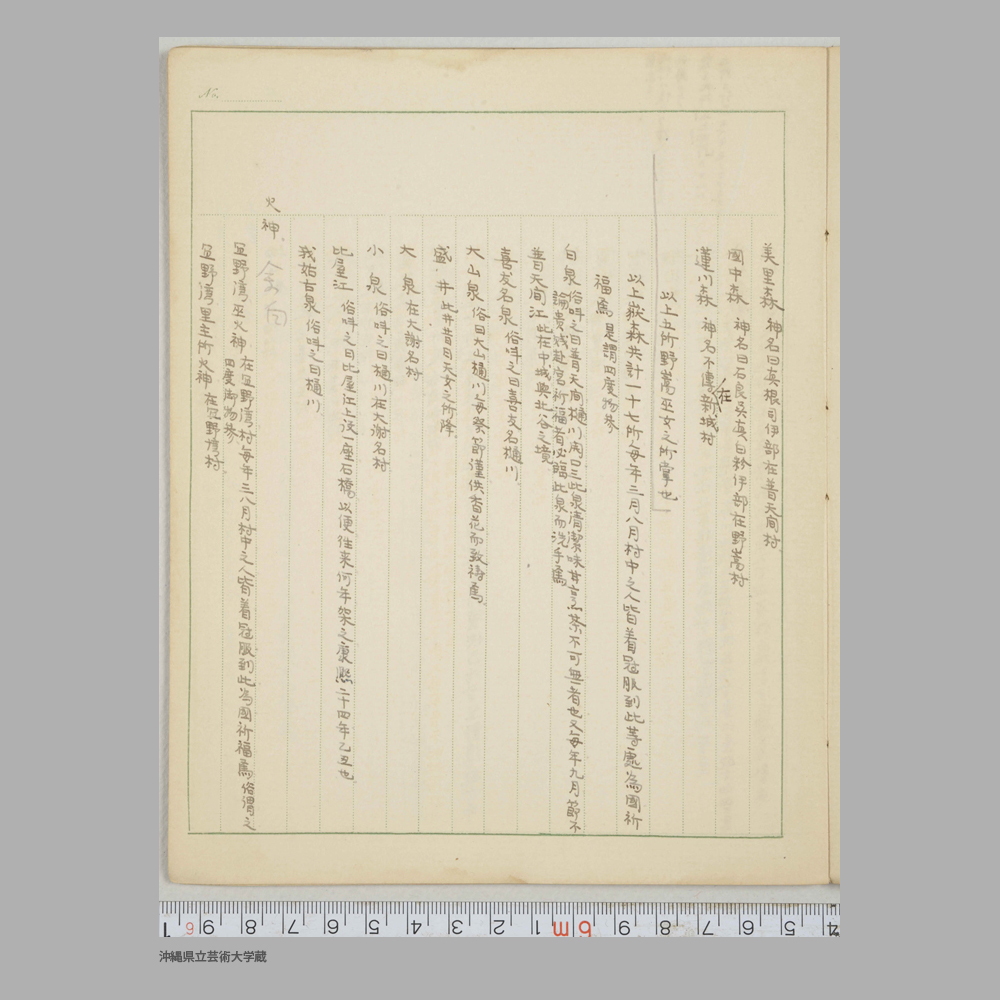 No.
美里森 神名曰真根司伊部在普天间村
國中森 神名曰石良吴真曰称伊部在野嵩村
蓮川森 神名不傳在新城村
以上五所野嵩巫女之所掌也
以上嶽森共計一十七所每年三月八月村中之人皆着冠服到此等處為國祈
福焉 是謂四度物参
白泉 俗呼之曰普天间樋川 此泉清潔味甘烹茶不可無者也又每年九月節不
論貴賎赴宮祈福者必臨此泉而洗手焉
普天间江 此在中城與北谷之境
喜友名泉 俗呼之曰喜友名樋川
大山泉 俗曰大山樋川每祭節僅供香花而致祷焉
盛井 此井昔日天女之所降
大泉 在大謝名村
小泉 俗呼之曰樋川在大謝名村
比屋江 俗呼之曰比屋江上設一座石橋以便往来何年架之康熙二十四年乙丑也
我如古泉 俗呼之曰樋川
火神
宜野湾巫火神 在宜野湾村每年三八月村中之人皆着冠服到此為國祈福焉俗謂之
四度御物参
宜野湾里主所火神 在宜野湾村
1 6 9 8 7 6 5 4 3 2 1 6m 9 8 7 6 5 4
沖縄県立芸術大学蔵